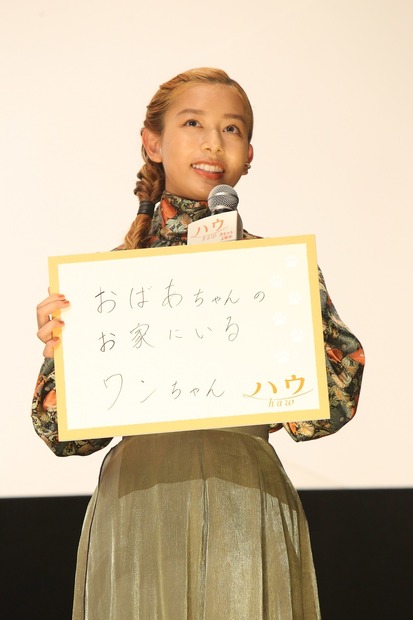 ハウ
haw
おばあちゃんの
お家にいる
ワンちゃん
ハウ
haw